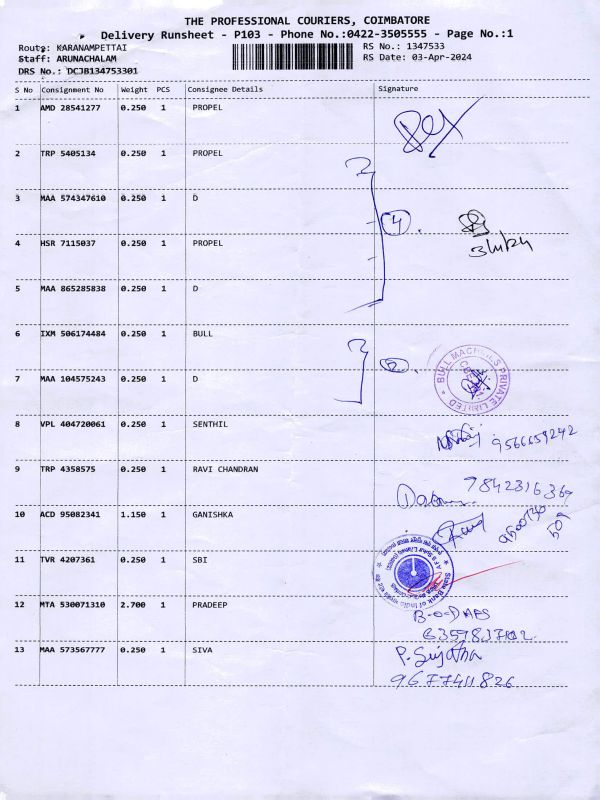 THE PROFESSIONAL COURIERS, COIMBATORE
Delivery Runsheet - P103 - Phone No.:0422-3505555 - Page No.:1
Route: KARANAMPETTAI RS No.: 1347533
Staff: ARUNACHALAM RS Date: 03-Apr-2024
DRS No.: DCJB134753301
S No Consignment No Weight PCS Consignee Details Signature
1 AMD 28541277 0.250 1 PROPEL
2 TRP 5405134 0.250 1 PROPEL
3 MAA 574347610 0.250 1 D
4
4 HSR 7115037 0.250 1 PROPEL
5 MAA 865285838 0.250 1 D
6 IXM 506174484 0.250 1 BULL
2
BULL MACHINES PRIVATE LIMITED
7 MAA 104575243 0.250 1 D
8 VPL 404720061 0.250 1 SENTHIL
9566659242
9 TRP 4358575 0.250 1 RAVI CHANDRAN
9842316369
10 ACD 95082341 1.150 1 GANISHKA
11 TVR 4207361 0.250 1 SBI
State Bank of India
12 MTA 530071310 2.700 1 PRADEEP
13 MAA 573567777 0.250 1 SIVA
P. Sujatha
9677411826